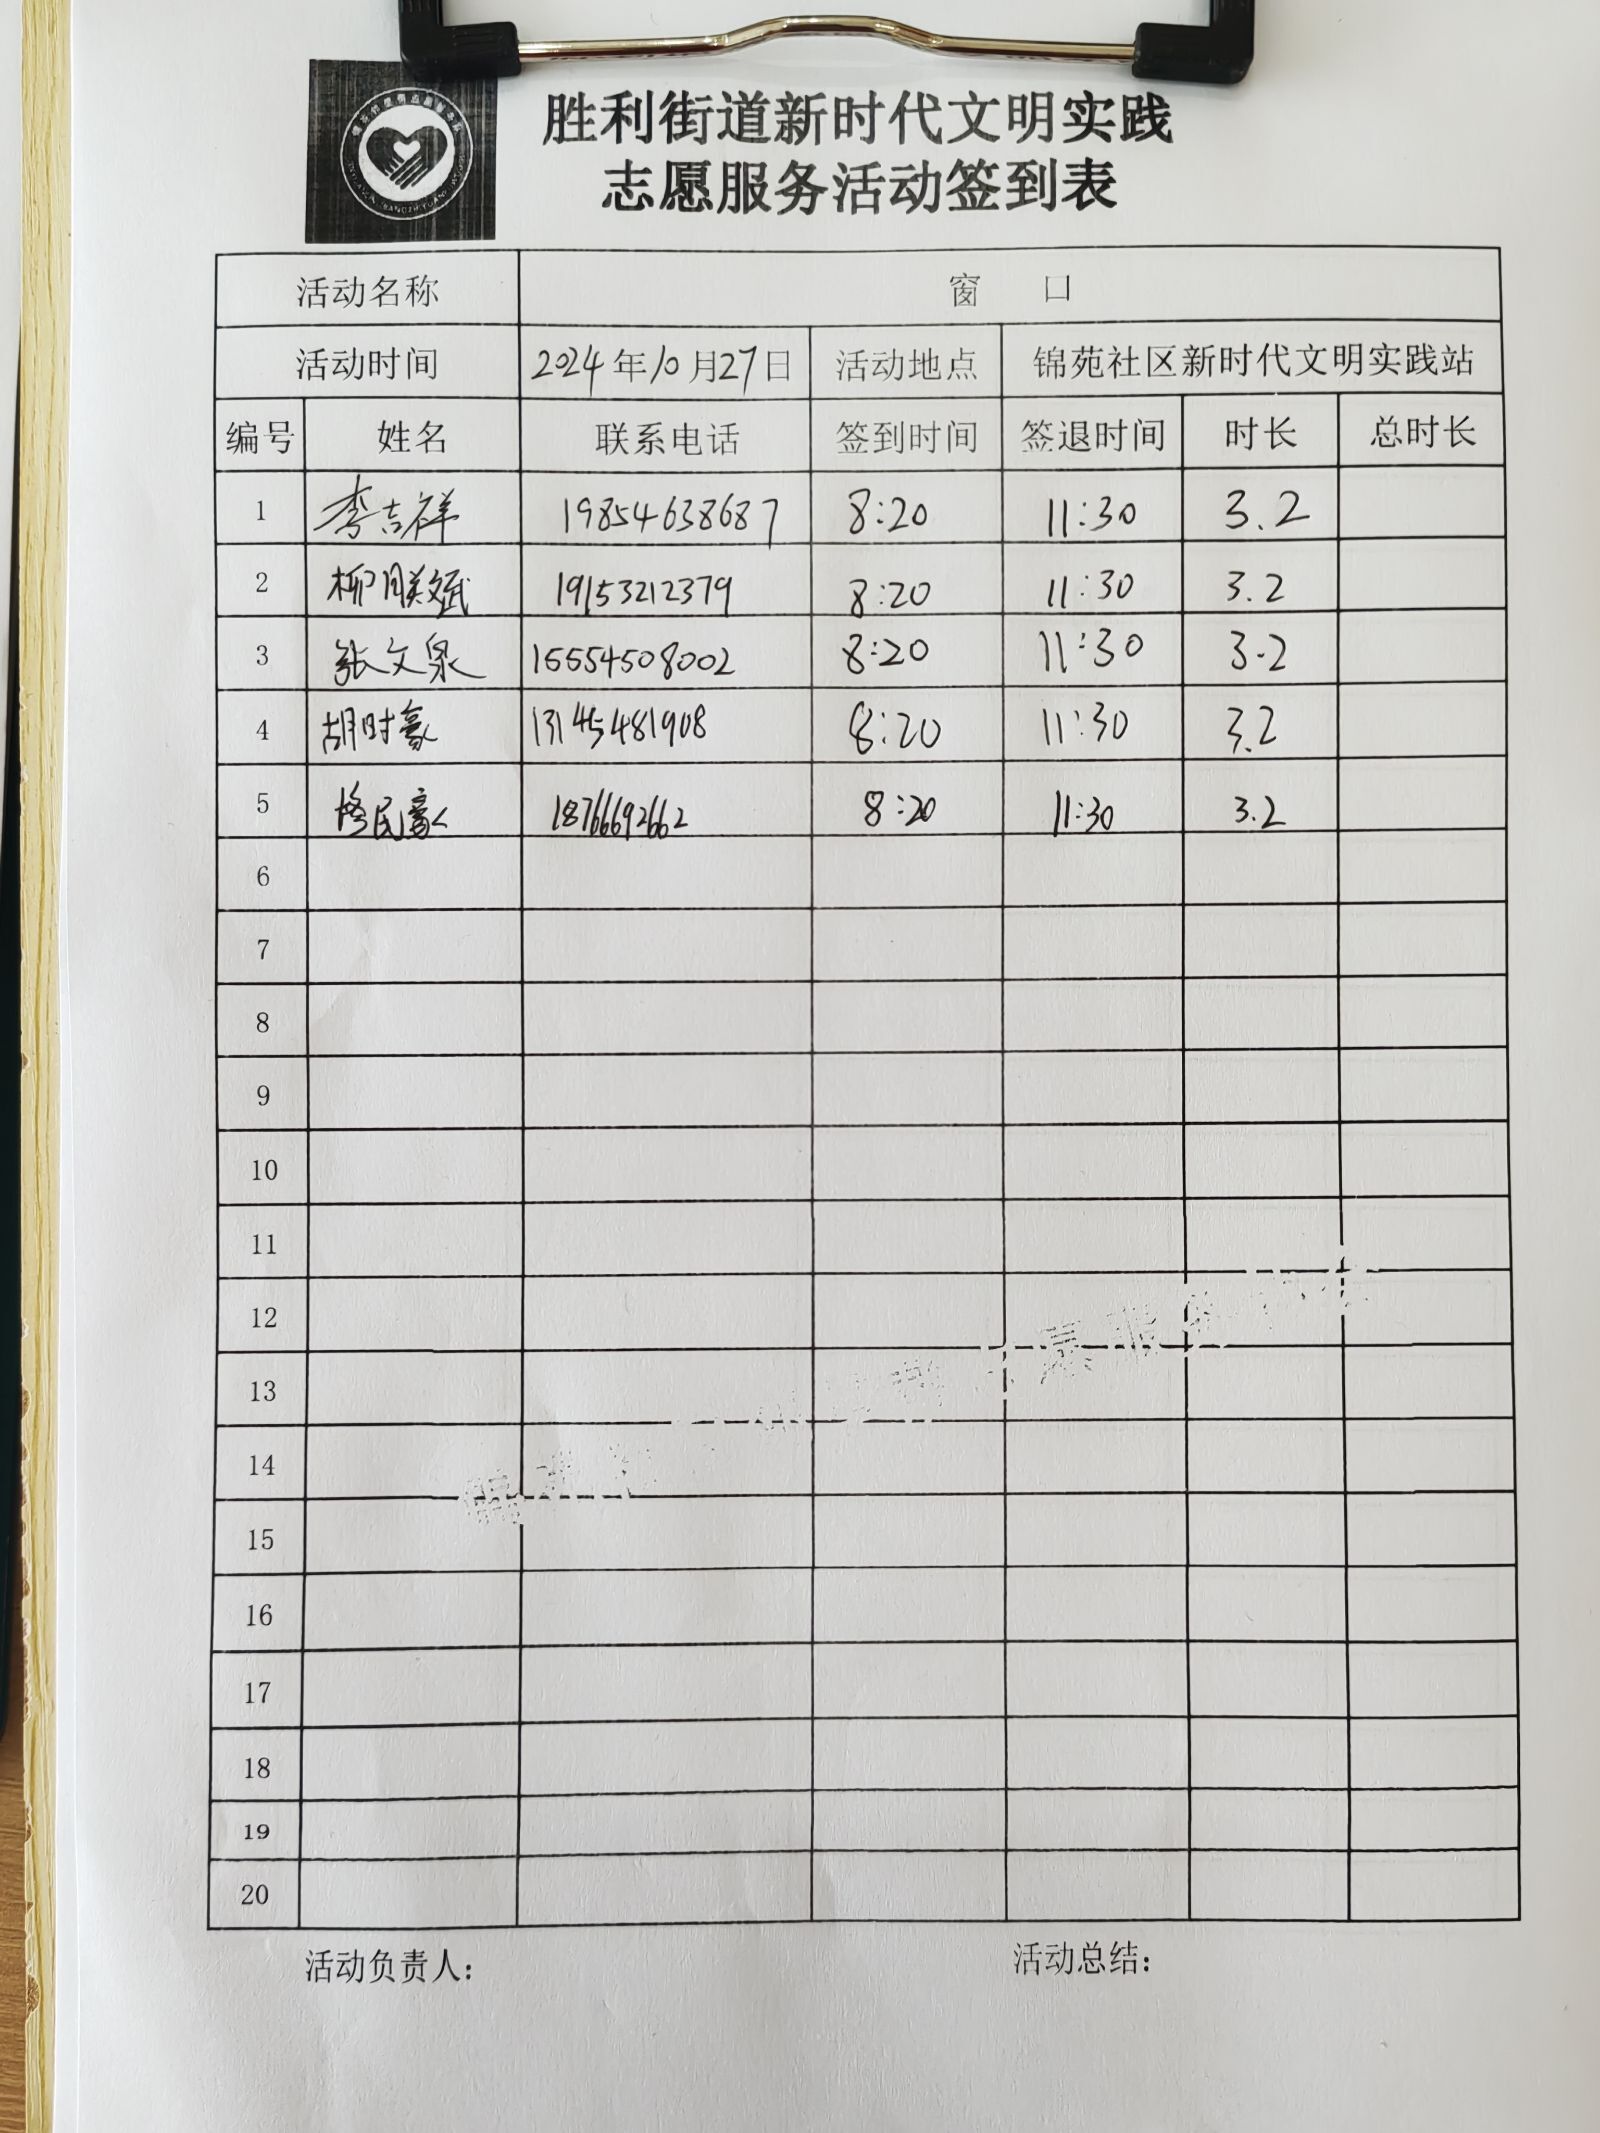 胜利街道新时代文明实践
志愿服务活动签到表
活动名称 窗 口
活动时间 2024年10月27日 活动地点 锦苑社区新时代文明实践站
编号 姓名 联系电话 签到时间 签退时间 时长 总时长
1 李吉祥 19854638687 8:20 11:30 3.2
2 19153212379 8:20 11:30 3.2
3 张文泉 15554508002 8:20 11:30 3.2
4 胡时豪 13145481908 8:20 11:30 3.2
5 18766692662 8:20 11:30 3.2
6
7
8
9
10
11
12
13
14
15
16
17
18
19
20
活动负责人: 活动总结: